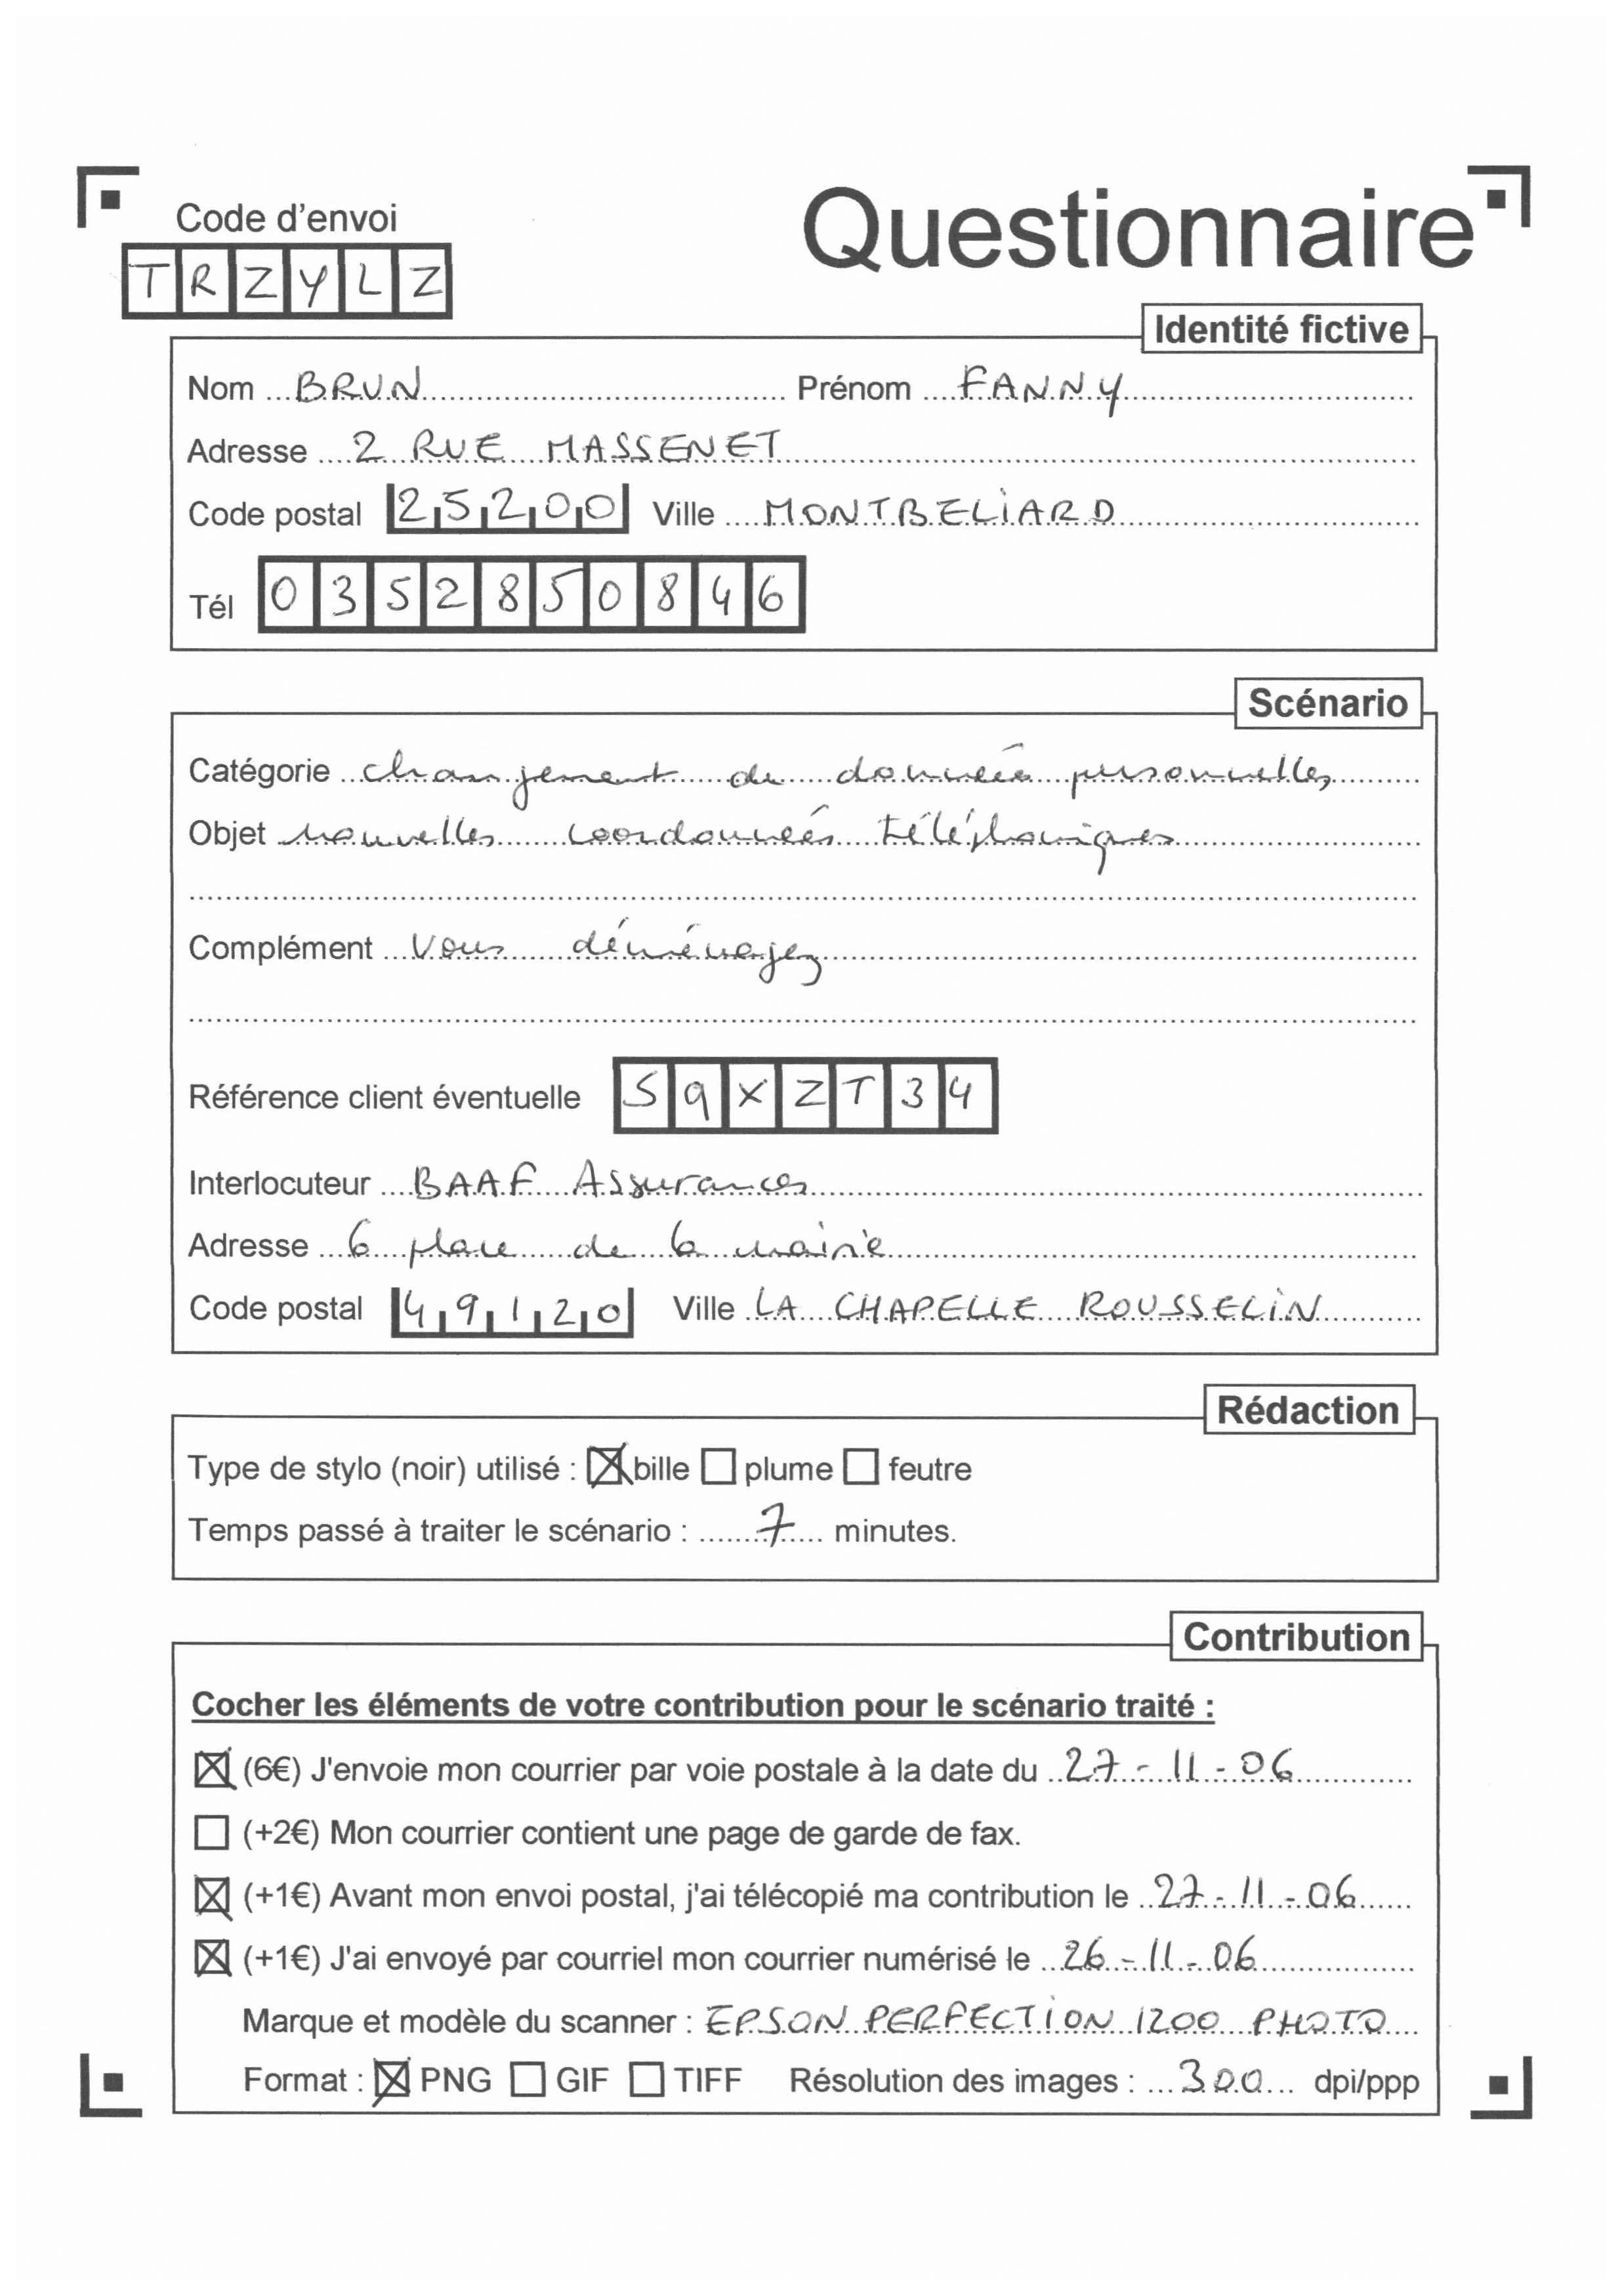 Code d'envoi
Questionnaire
TRZYLZ
Identité fictive
Nom BRUN Prénom FANNY
Adresse 2 RUE MASSENET
Code postal 25200 Ville MONTBELIARD
Tél 0352850846
Scénario
Catégorie changement de données personnelles
Objet nouvelles coordonnées téléphoniques
Complément Vous déménagez
Référence client éventuelle S9XZT34
Interlocuteur BAAF Assurances
Adresse 6 place de la mairie
Code postal 49120 Ville LA CHAPELLE ROUSSELIN
Rédaction
Type de stylo (noir) utilisé : ☒ bille ☐ plume ☐ feutre
Temps passé à traiter le scénario : 7 minutes.
Contribution
Cocher les éléments de votre contribution pour le scénario traité :
☒ (6€) J'envoie mon courrier par voie postale à la date du 27-11-06
☐ (+2€) Mon courrier contient une page de garde de fax.
☒ (+1€) Avant mon envoi postal, j'ai télécopié ma contribution le 27-11-06
☒ (+1€) J'ai envoyé par courriel mon courrier numérisé le 26-11-06
Marque et modèle du scanner : EPSON PERFECTION 1200 PHOTO
Format : ☒ PNG ☐ GIF ☐ TIFF Résolution des images : 300 dpi/ppp